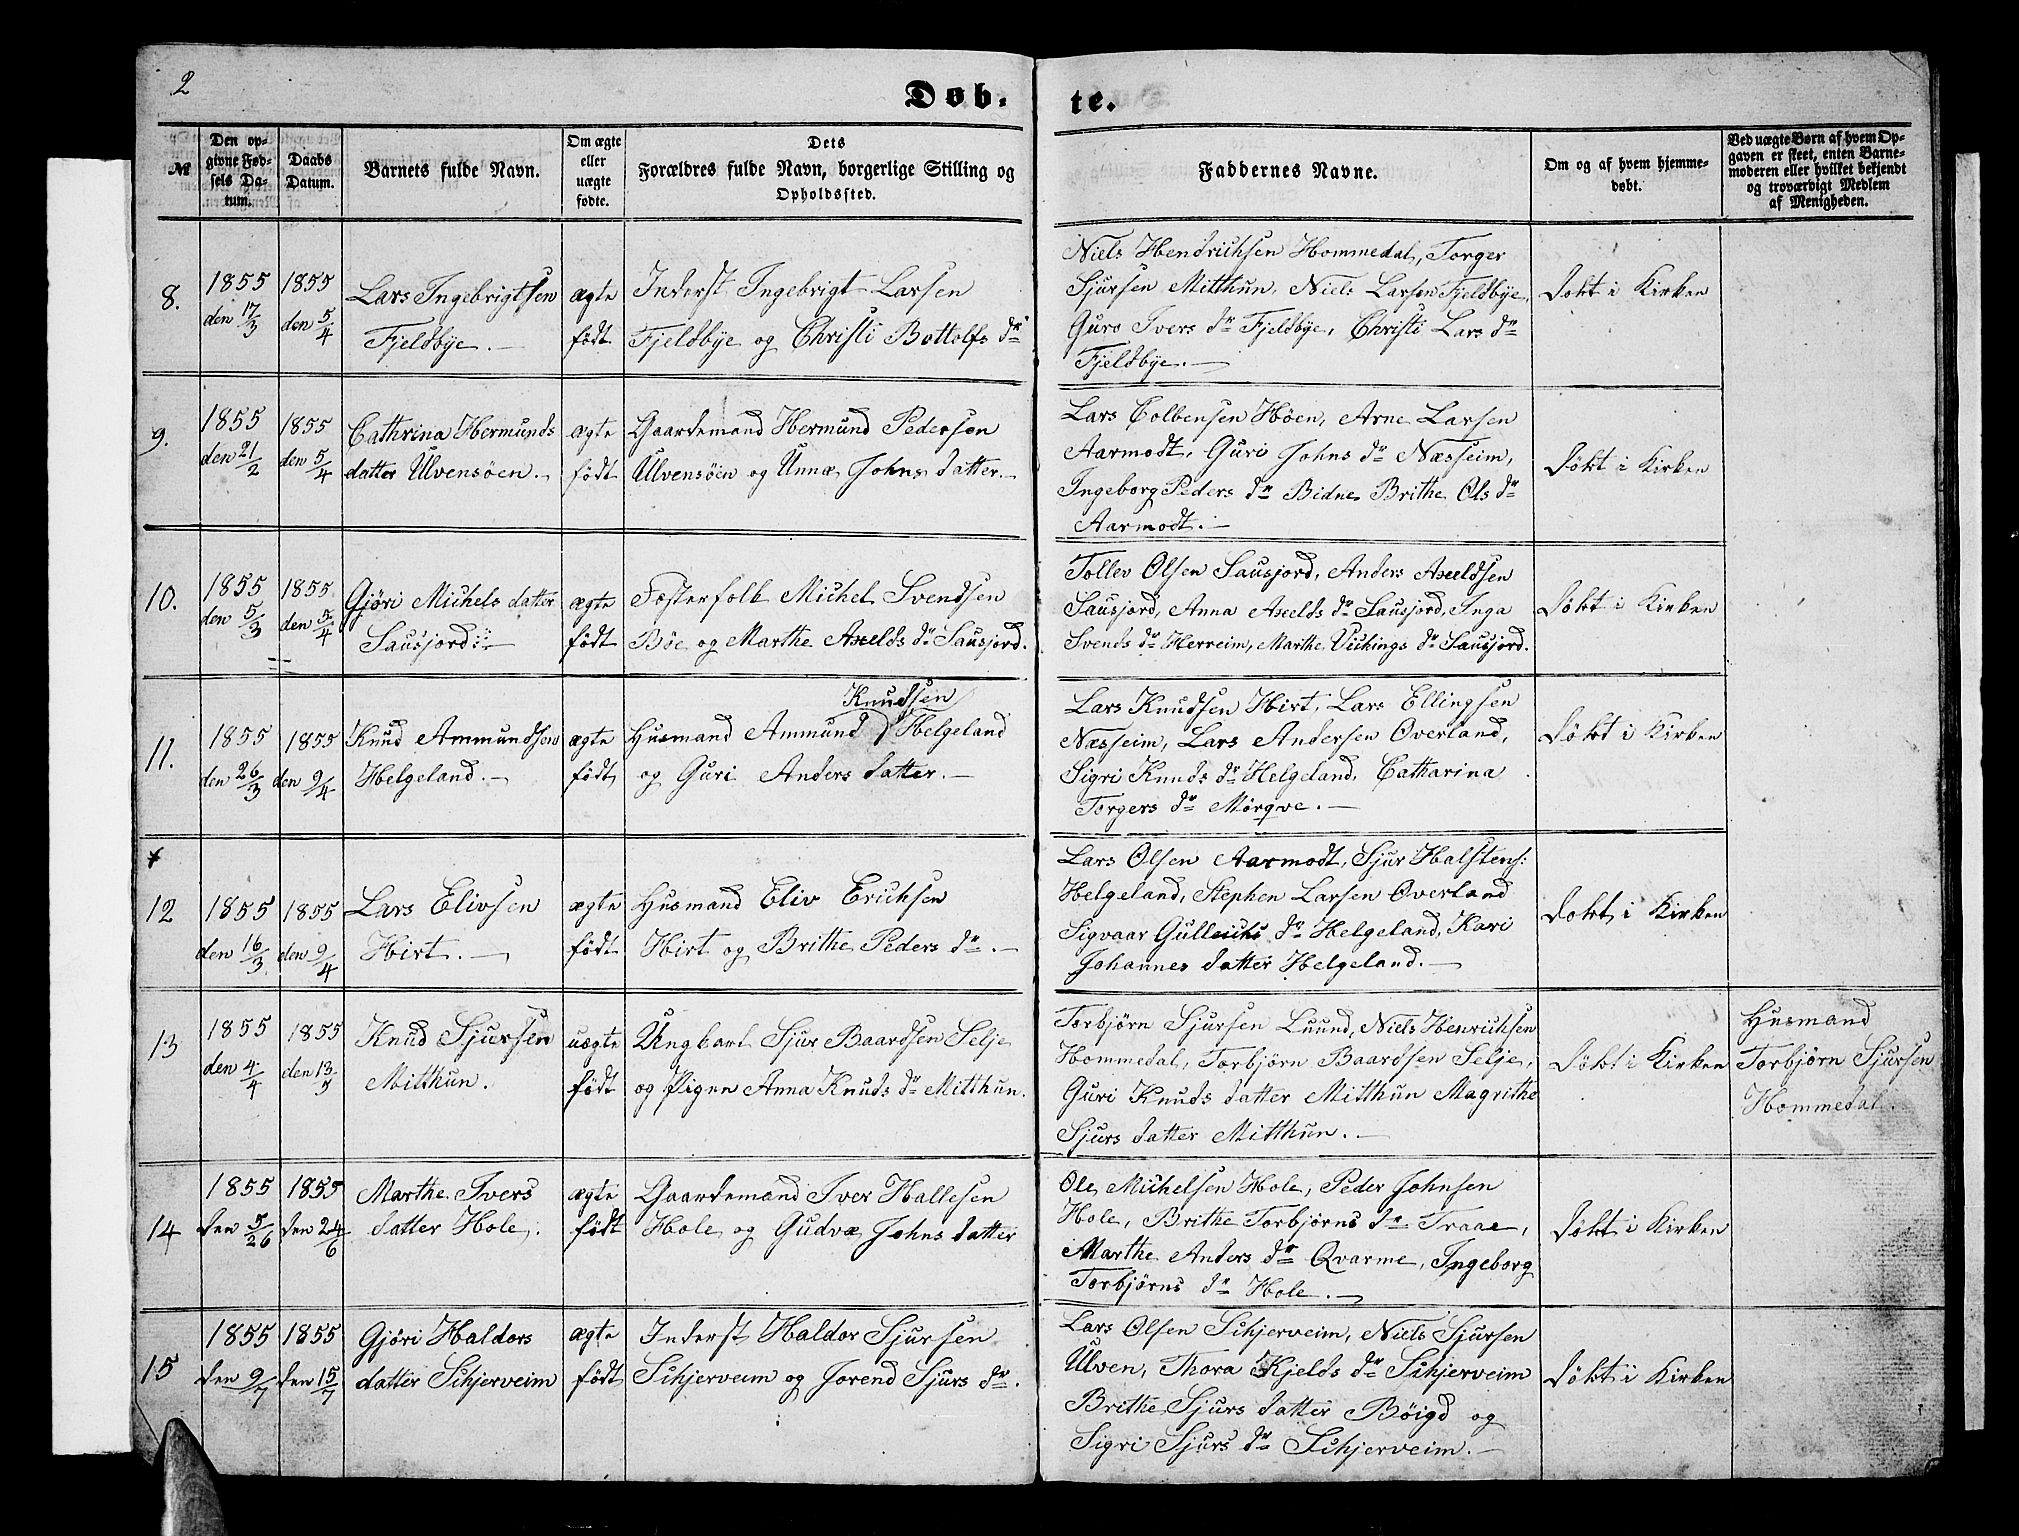 2
Døb-
te.
№
Den op-
givne Fød-
sels Da-
tum.
Daabs
Datum.
Barnets fulde Navn.
Om ægte
eller
uægte
fødte.
Dets
Forældres fulde Navn, borgerlige Stilling og
Opholdssted.
Faddernes Navne.
Om og af hvem hjemme-
døbt.
Ved uægte Børn af hvem Op-
gaven er skeet, enten Barne-
moderen eller hvilket bekjendt
og troværdigt Medlem
af Menigheden.
8.
1855
den 17/3
1855
den 5/4
Lars Ingebrigtsen
Fjeldbye.
ægte
født
Inderst Ingebrigt Larsen
Fjeldbye og Christi Bottolfs dr
Niels Hendrichsen Hommedal, Torger
Sjursen Mitthun, Niels Larsen Fjeldbye,
Guro Ivers dr Fjeldbye, Christi Lars dr
Fjeldbye.
Døbt i Kirken
9.
1855
den 21/2
1855
den 5/4
Cathrina Hermunds
datter Ulvensöen.
ægte
født
Gaardemand Hermund Pedersen
Ulvensöen og Unnæ Johns datter.
Lars Colbensen Höen, Arne Larsen
Aarmodt, Guri Johns dr Næsseim,
Ingeborg Peders dr Bidne Brithe Ols dr
Aarmodt.
Døbt i Kirken
10.
1855
den 5/3
1855
den 5/4
Gjöri Michels datter
Sausjord.
ægte
født
Fæsterfolk Michel Svendsen
Böe og Marthe Axelds dr Sausjord.
Tollev Olsen Sausjord, Anders Axeldsen
Sausjord, Anna Axelds dr Sausjord, Inga
Svends dr Herreim, Marthe Vickings dr Sausjord.
Døbt i Kirken
11.
1855
den 26/3
1855
den 9/4
Knud Ammundsen
Helgeland.
ægte
født
Knudsen
Husmand Ammund Helgeland
og Guri Anders datter.
Lars Knudsen Hirt, Lars Ellingsen
Næsseim, Lars Andersen Overland,
Sigri Knuds dr Helgeland, Catharina
Torgers dr Mörqve.
Døbt i Kirken
12
1855
den 16/3
1855
den 9/4
Lars Elivsen
Hirt.
ægte
født
Husmand Eliv Erichsen
Hirt og Brithe Peders dr.
Lars Olsen Aarmodt, Sjur Halstens:
Helgeland, Stephen Larsen Overland
Sigvaar Gulleichs dr Helgeland, Kari
Johannes datter Helgeland.
Døbt i Kirken
13
1855
den 4/4
1855
den 13/5
Knud Sjursen
Mitthun.
uægte
født
Ungkarl Sjur Baardsen Selje
og Pigen Anna Knuds dr Mitthun.
Torbjörn Sjursen Luund, Niels Henrichsen
Hommedal, Torbjörn Baardsen Selje,
Guri Knuds datter Mitthun Magrithe
Sjurs datter Mitthun.
Døbt i Kirken
Husmand
Torbjörn Sjursen
Hommedal.
14
1855
den 5/26
1855
den 24/6
Marthe Ivers
datter Hole.
ægte
født
Gaardemand Iver Hallesen
Hole og Gudvæ Johns datter
Ole Michelsen Hole, Peder Johnsen
Hole, Brithe Torbjörns dr Traae,
Marthe Anders dr Qvarme, Ingeborg
Torbjörns dr Hole.
Døbt i Kirken
15
1855
den 9/7
1855
den 15/7
Gjöri Haldors
datter Schjerveim
ægte
født
Inderst Haldor Sjursen
Schjerveim og Jorend Sjurs dr.
Lars Olsen Schjerveim, Niels Sjursen
Ulven, Thora Kjelds dr Schjerveim
Brithe Sjurs datter Böigd og
Sigri Sjurs dr Schjerveim.
Døbt i Kirken